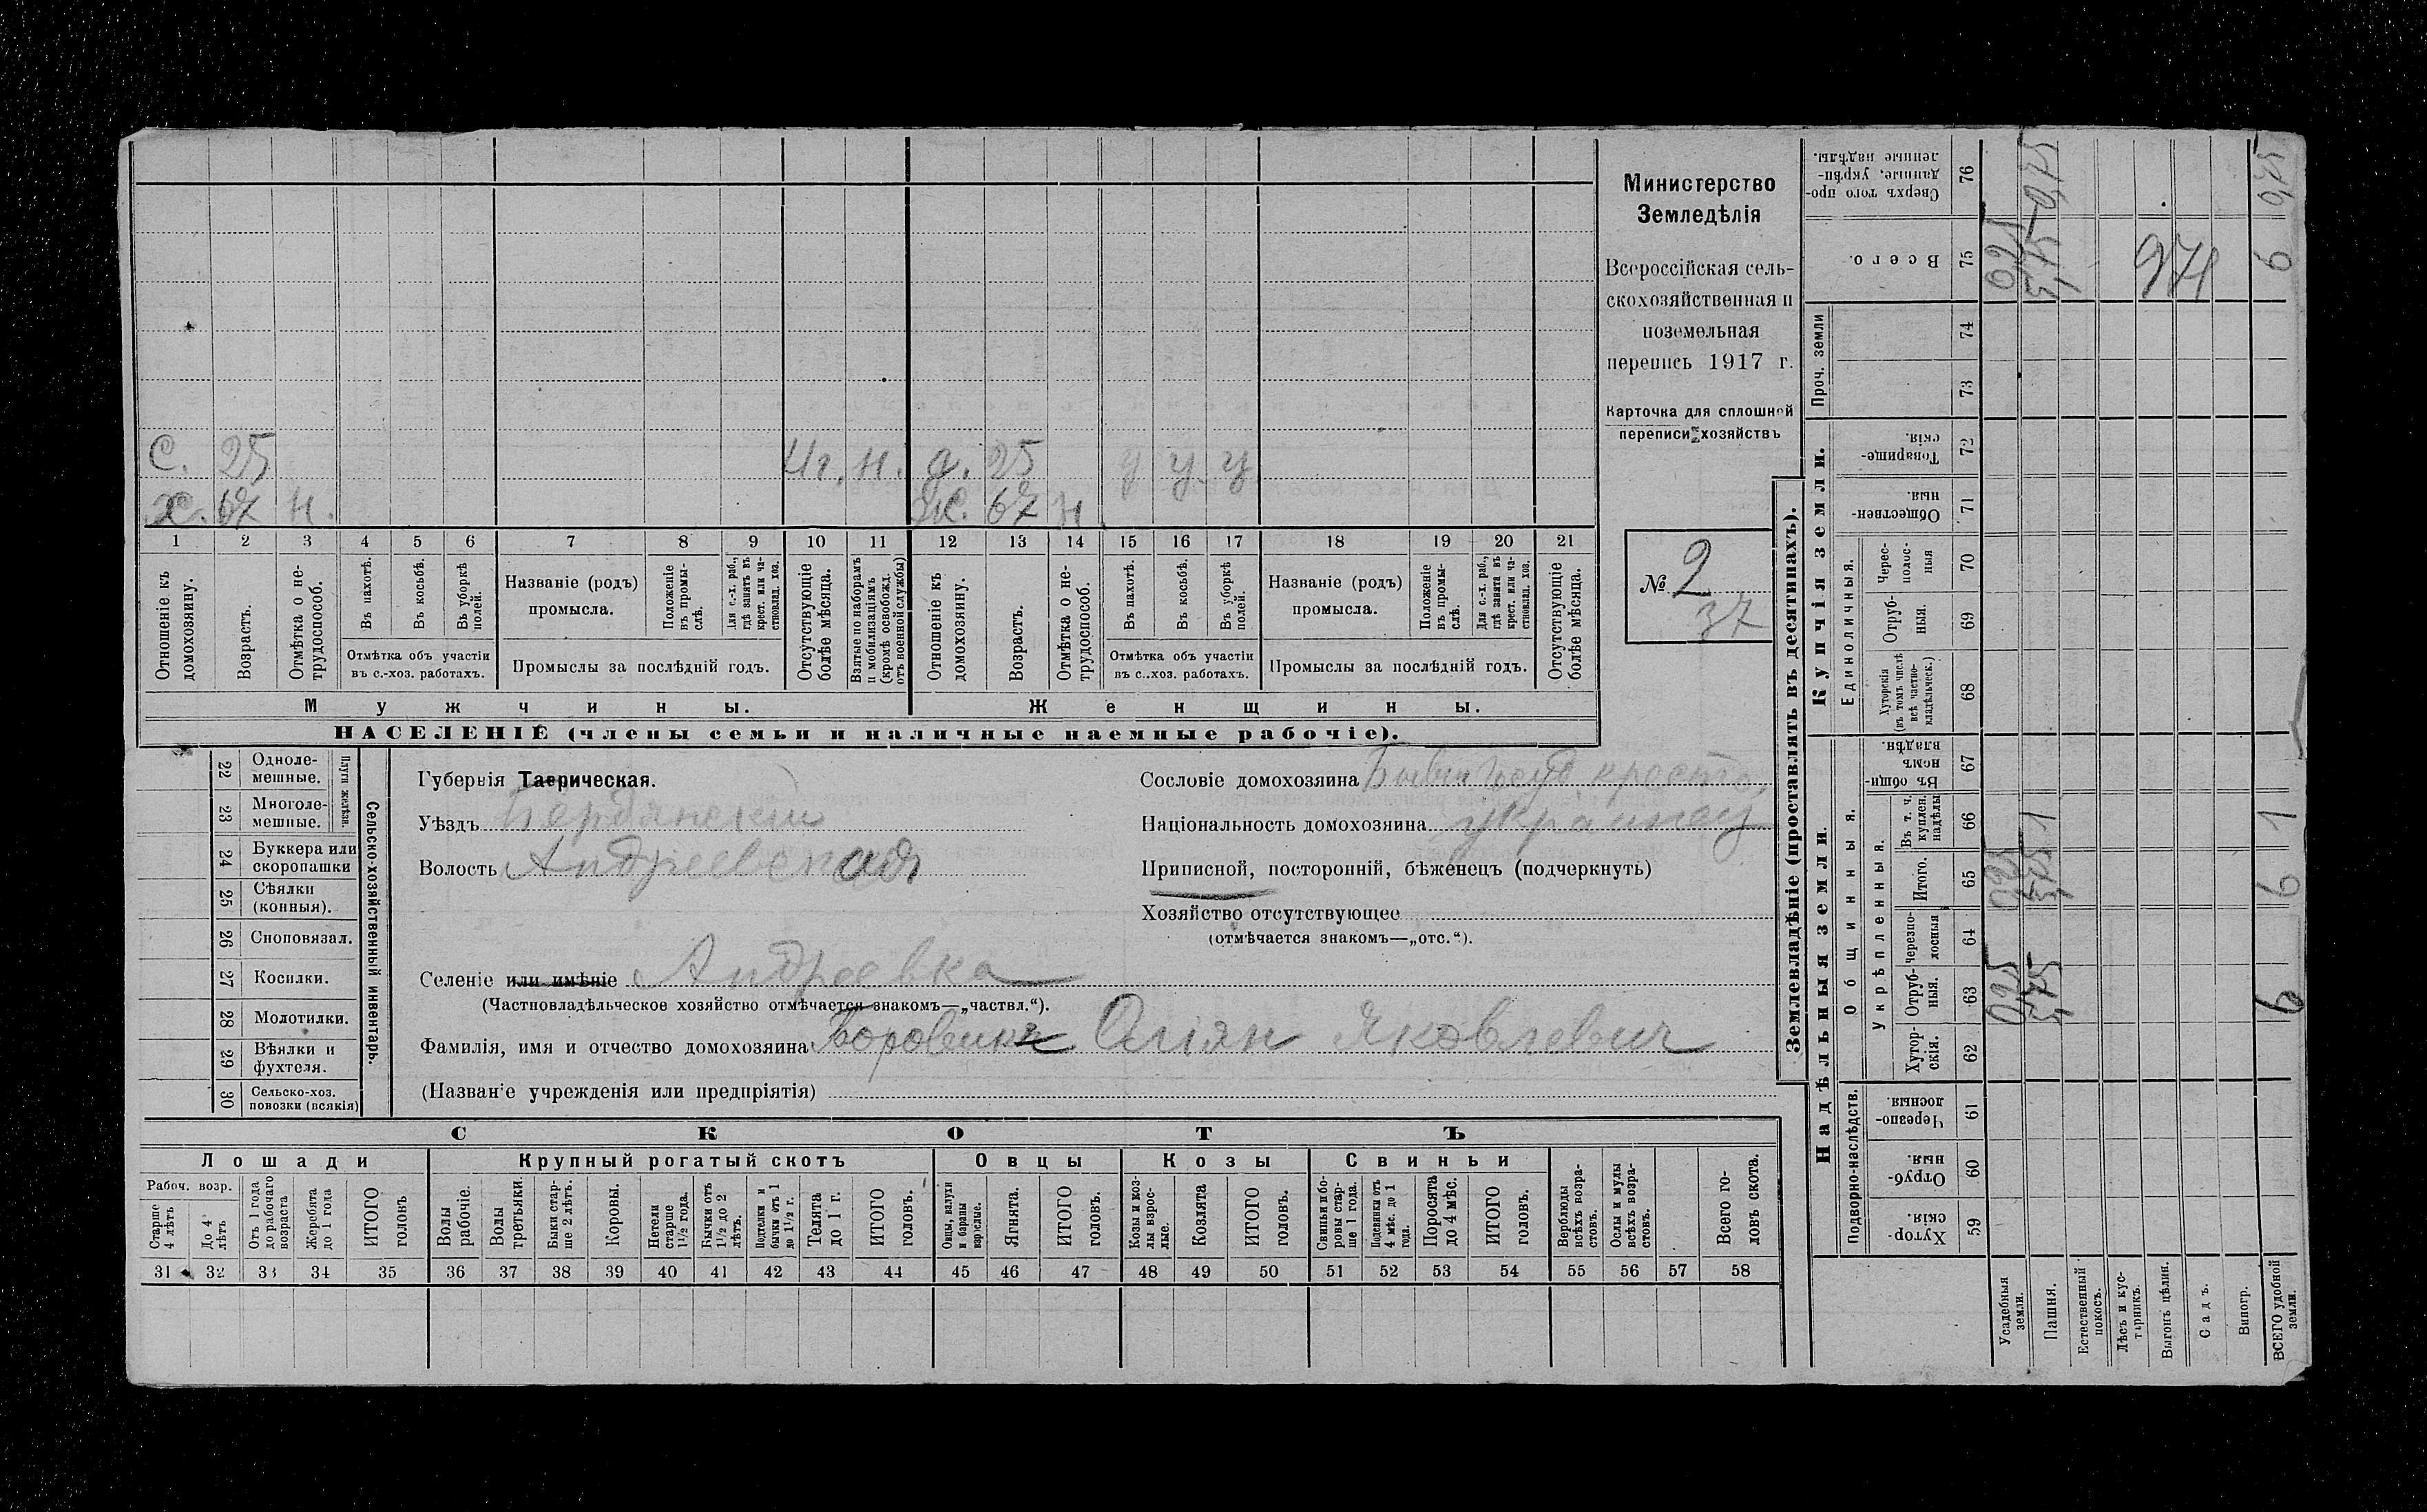 Министерство
Земледѣлія
Всероссійская сель-
скохозяйственная и
поземельная
перепись 1917 г.
Карточка для сплошной
переписи хозяйствъ
№ 2
37
С. 25 н. д. 25 у у у
х. 67 н. ж. 67 н
1 2 3 4 5 6 7 8 9 10 11 12 13 14 15 16 17 18 19 20 21
Отношеніе къ домохозяину.
Возрастъ.
Отмѣтка о не-трудоспособ.
Въ пахотѣ.
Въ косьбѣ.
Въ уборкѣ полей.
Отмѣтка объ участіи
въ с.-хоз. работахъ.
Названіе (родъ)
промысла.
Положеніе въ промы-слѣ.
Для с.-х. раб., гдѣ занятъ въ крест. или ча-стновлад. хоз.
Промыслы за послѣдній годъ.
Отсутствующіе болѣе мѣсяца.
Взятые по наборамъ и мобилизаціямъ (кромѣ освобожд. отъ военной службы)
Отношеніе къ домохозяину.
Возрастъ.
Отмѣтка о не-трудоспособ.
Въ пахотѣ.
Въ косьбѣ.
Въ уборкѣ полей.
Отмѣтка объ участіи
въ с.-хоз. работахъ.
Названіе (родъ)
промысла.
Положеніе въ промы-слѣ.
Для с.-х. раб., гдѣ занята въ крест. или ча-стновлад. хоз.
Промыслы за послѣдній годъ.
Отсутствующіе болѣе мѣсяца.
Мужчины.
Женщины.
НАСЕЛЕНІЕ (члены семьи и наличные наемные рабочіе).
Сельско-хозяйственный инвентарь.
Плуги желѣзн.
22 Одноле-мешные.
23 Многоле-мешные.
24 Буккера или скоропашки
25 Сѣялки (конныя).
26 Сноповязал.
27 Косилки.
28 Молотилки.
29 Вѣялки и фухтеля.
30 Сельско-хоз. повозки (всякія)
Губернія Таврическая.
Уѣздъ Бердянскій
Волость Андреевская
Селеніе или имѣніе Андреевка
(Частновладѣльческое хозяйство отмѣчается знакомъ—„частвл.“).
Фамилія, имя и отчество домохозяина Яковлевич
(Названіе учрежденія или предпріятія)
Сословіе домохозяина
Національность домохозяина украинец
Приписной, посторонній, бѣженецъ (подчеркнуть)
Хозяйство отсутствующее
(отмѣчается знакомъ—„отс.“).
СКОТЪ
Лошади
Рабоч. возр.
Старше 4 лѣтъ
До 4 лѣтъ
Отъ 1 года до рабочаго возраста
Жеребята до 1 года
ИТОГО головъ
Крупный рогатый скотъ
Волы рабочіе.
Волы третьяки.
Быки стар-ше 2 лѣтъ.
Коровы.
Нетели старше 1½ года.
Бычки отъ 1½ до 2 лѣтъ.
Подтелки и бычки отъ 1 до 1½ г.
Телята до 1 г.
ИТОГО головъ.
Овцы
Овцы, валухи и бараны взрослые.
Ягнята.
ИТОГО головъ.
Козы
Козы и коз-лы взрос-лые.
Козлята
ИТОГО головъ.
Свиньи
Свиньи и бо-ровы стар-ше 1 года.
Подсвинки отъ 4 мѣс. до 1 года.
Поросята до 4 мѣс.
ИТОГО головъ.
Верблюды всѣхъ возра-стовъ.
Ослы и мулы всѣхъ возра-стовъ.
Всего го-ловъ скота.
31 32 33 34 35 36 37 38 39 40 41 42 43 44 45 46 47 48 49 50 51 52 53 54 55 56 57 58
Землевладѣніе (проставлять въ десятинахъ).
Надѣльныя земли.
Подворно-наслѣдств.
Хутор-скія. 59
Отруб-ныя. 60
Черезпо-лосныя. 61
Общинныя.
Укрѣпленныя.
Хутор-скія. 62
Отруб-ныя. 63
черезпо-лосныя 64
Итого. 65
Въ т. ч. куплен. надѣлы 66
Въ общи-номъ владѣн. 67
Купчія земли.
Единоличныя.
Хуторскія (въ томъ числѣ всѣ частно-владѣльческ.) 68
Отруб-ныя. 69
Черес-полос-ныя 70
Обществен-ныя. 71
Товарище-скія. 72
Проч. земли
73
74
Всего. 75
Сверхъ того про-данные, укрѣп-ленные надѣлы. 76
Усадебныя земли.
Пашня.
Естественный покосъ.
Лѣсъ и кус-тарникъ.
Выгонъ цѣлин.
Садъ.
Виногр.
ВСЕГО удобной земли.
6 6 1 6